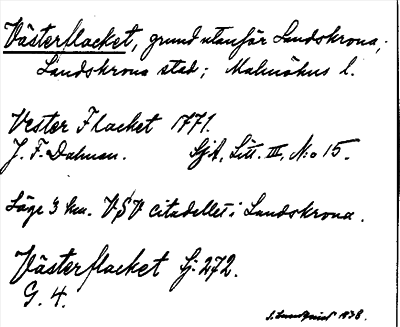 Västerflacket, grund utanför Landskrona,
Landskrona stad; Malmöhus l.
Vester Flacket 1771.
J. F. Dalman. SjA, Litt. III, N:o 15.
Läge 3 km. VSV citadellet i Landskrona.
Västerflacket Sj. 272.
G. 4.
J. Lundquist 1938.